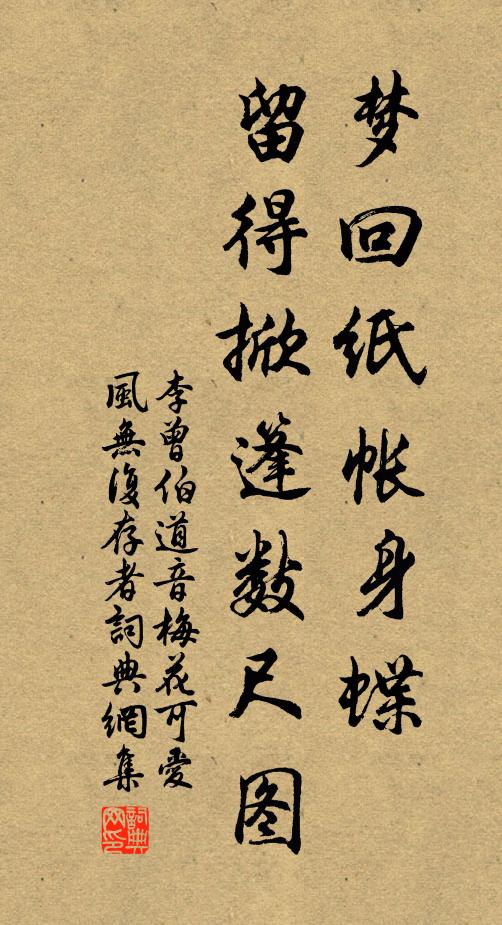 梦回纸帐身蝶
留得掀篷数尺图
李曾伯道音梅花可爱
風無復存者詞典網集
詞典網印